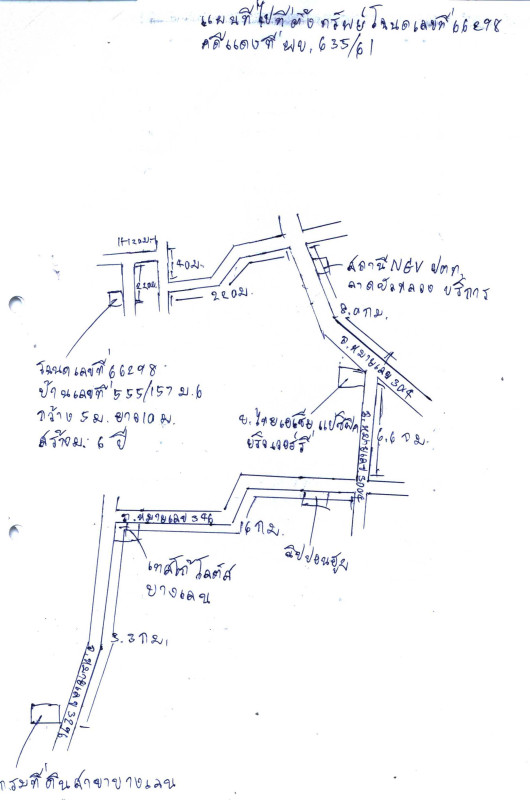 แผนที่ไปที่ตั้งทรัพย์โฉนดเลขที่ 66298
คดีแดงที่ พบ. 635/61
120ม.
40ม.
22ม.
220ม.
สถานี NGV ปตท.
ลาดบัวหลวง บริการ
8.0 กม.
ถ.หมายเลข 304
โฉนดเลขที่ 66298
บ้านเลขที่ 555/157 ม.6
กว้าง 5 ม. ยาว 10 ม.
สร้างม. 6 ปี
บ.ไทยเอเชีย แปซิฟิค
บริวเวอร์รี่
ถ.หมายเลข 3004
6.6 กม.
ถ.หมายเลข 346
16 กม.
นิปปอน
เทสโก้โลตัส
บางเลน
3.3 กม.
ถ.หมายเลข 3296
กรมที่ดินสาขาบางเลน